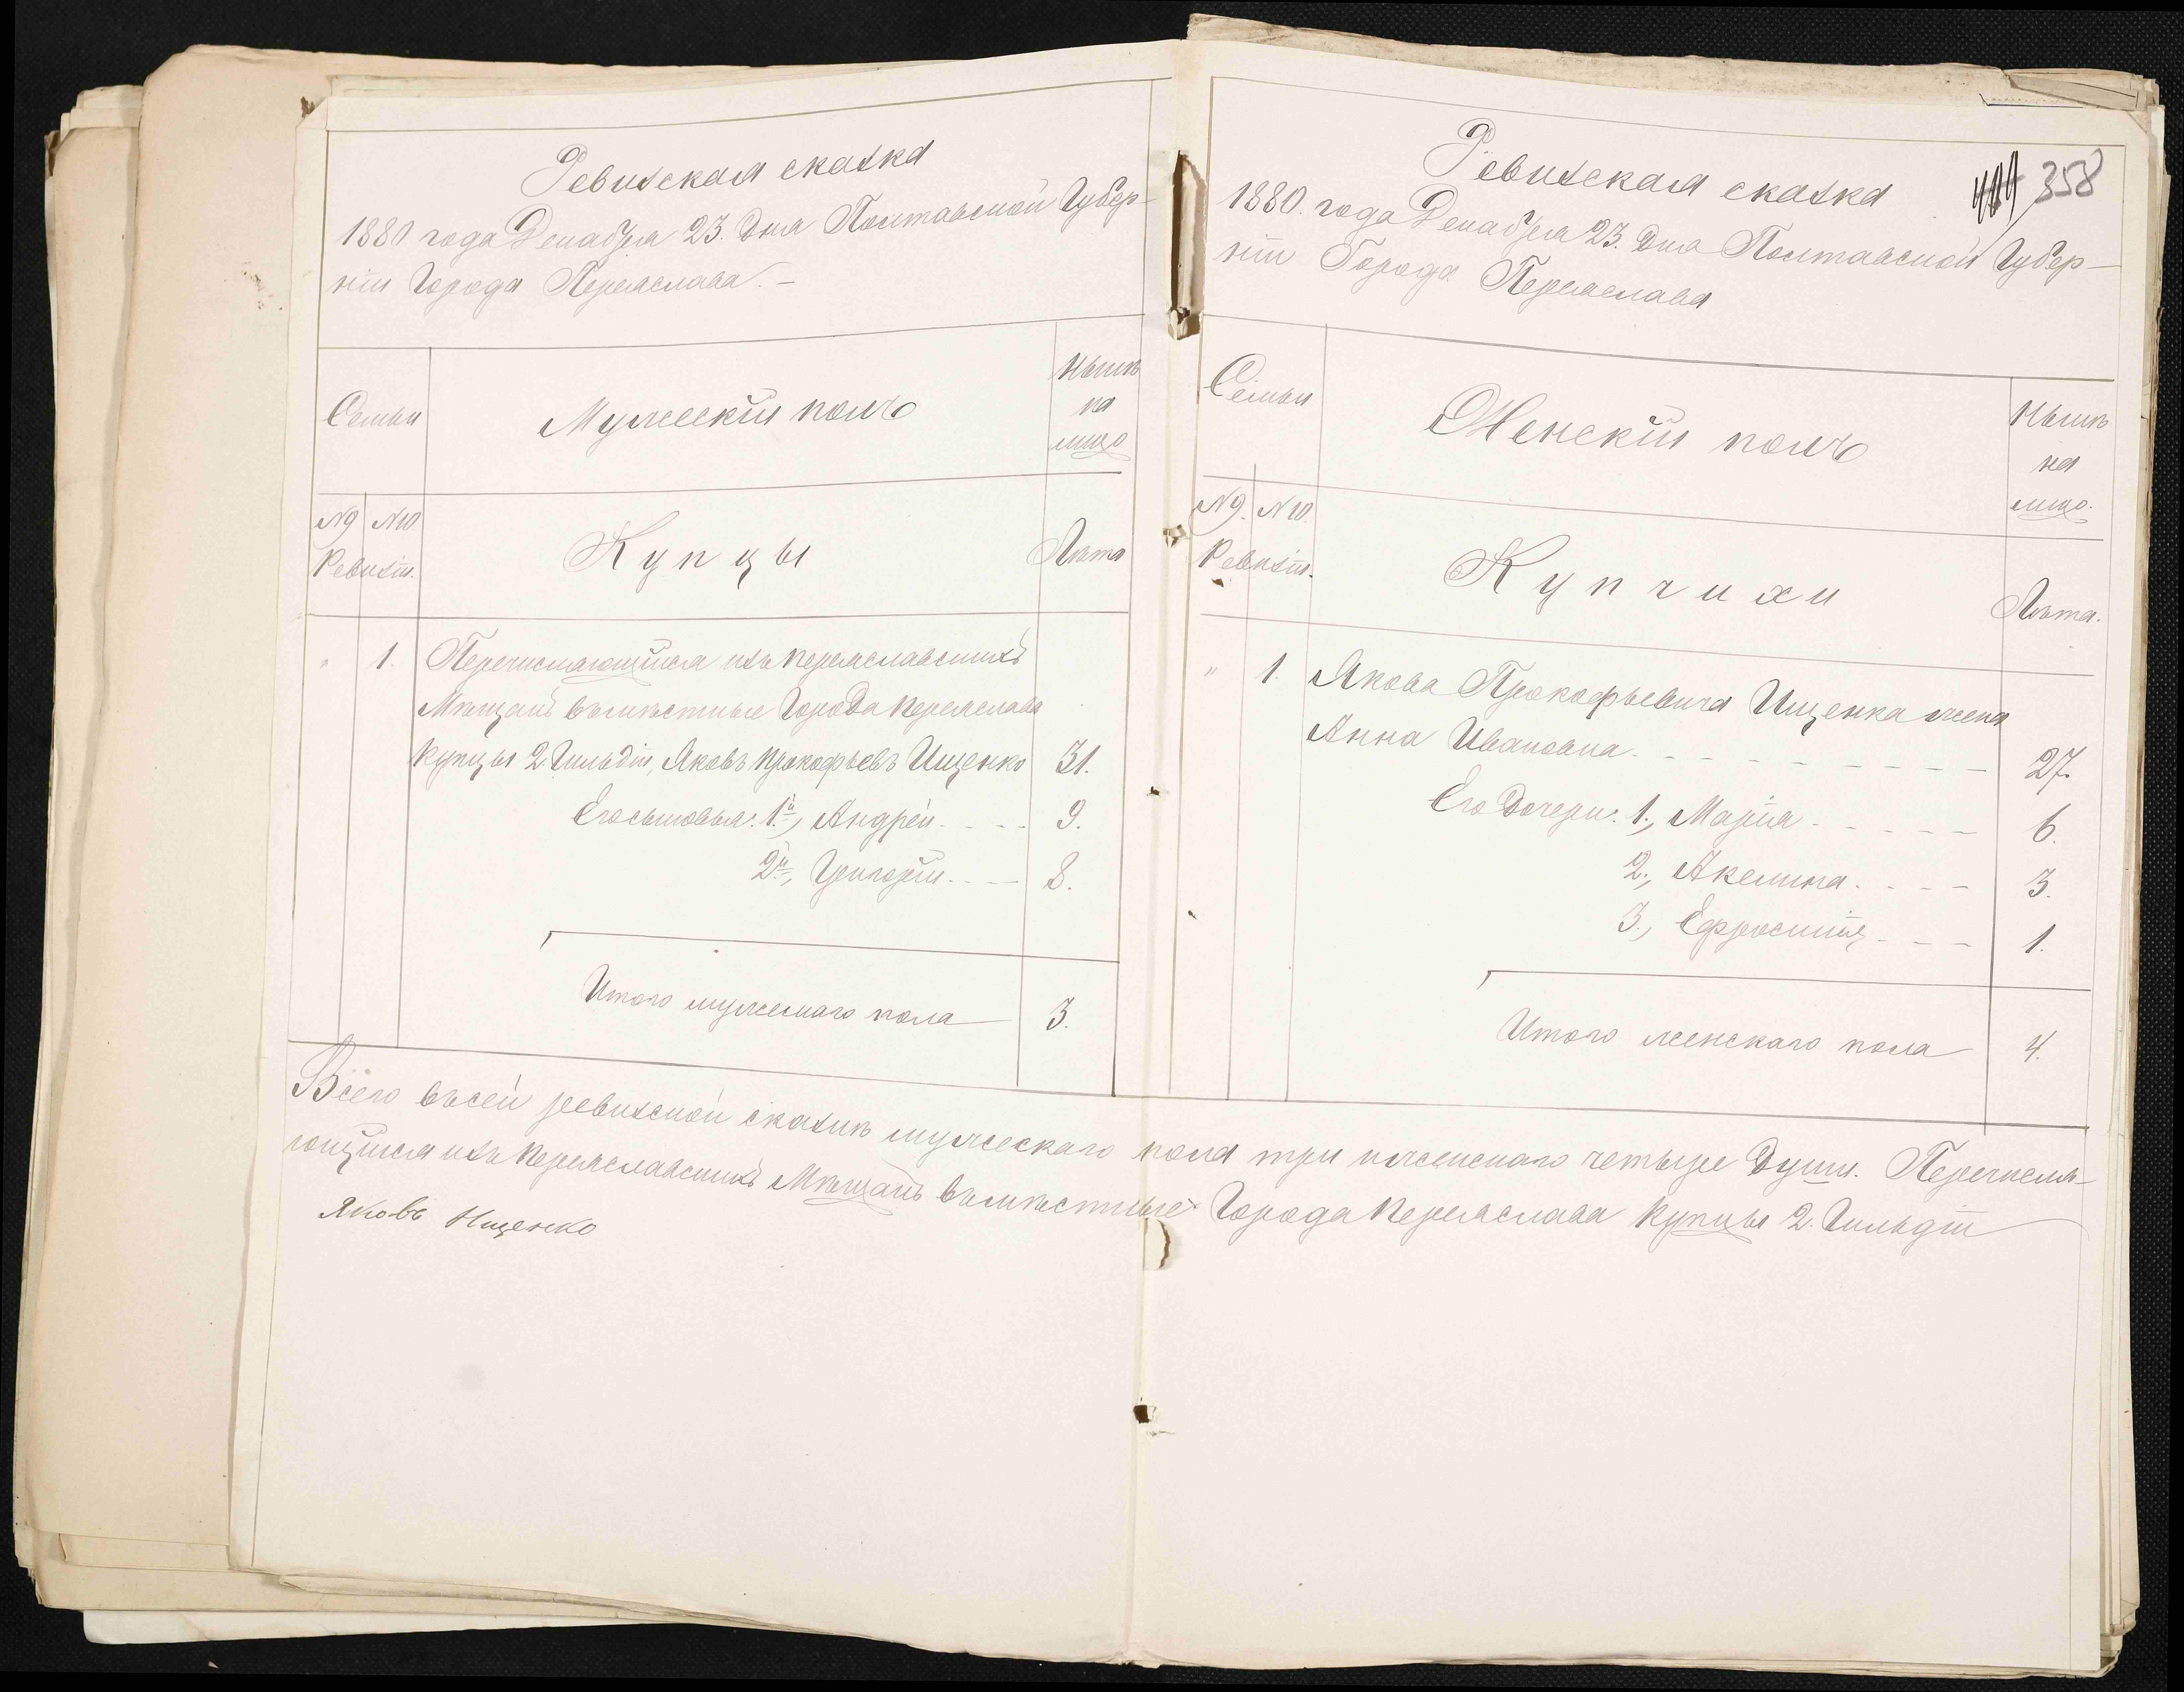 Ревизская сказка
1880 года Декабря 23. дня Полтавской Губер-
ніи Города Переяслава. -
Семьи
Мужескій полъ
Нынѣ
на
лицо
№9 №10
Ревизіи.
Купцы
Лѣта
" 1. Перечисляющійся изъ Переяславскихъ
Мѣщанъ въ мѣстные Города Переяслава
Купцы 2 Гильдіи, Яковъ Прокофьевъ Ищенко 31.
Его сыновья: 1й, Андрей. - - - - 9.
2й, Григорій. - - - 8.
Итого мужескаго пола 3.
Ревизская сказка
358
1880 года Декабря 23. дня Полтавской Губер-
ніи Города Переяслава
Семьи
Женскій полъ
Нынѣ
на
лицо.
№9. №10.
Ревизіи.
Купчихи
Лѣта.
" 1. Якова Прокофьевича Ищенка жена
Анна Ивановна. - - - - - - - - - 27.
Его дочери: 1., Марія - - - - - - 6.
2., Акелина. - - - - 3.
3., Ефросинія - - - - 1.
Итого женскаго пола 4.
Всего въ сей ревизской сказкѣ мужескаго пола три и женскаго четыре души. Перечисля-
ющійся изъ Переяславскихъ Мѣщанъ въ мѣстные Города Переяслава Купцы 2. Гильдіи
Яковъ Ищенко